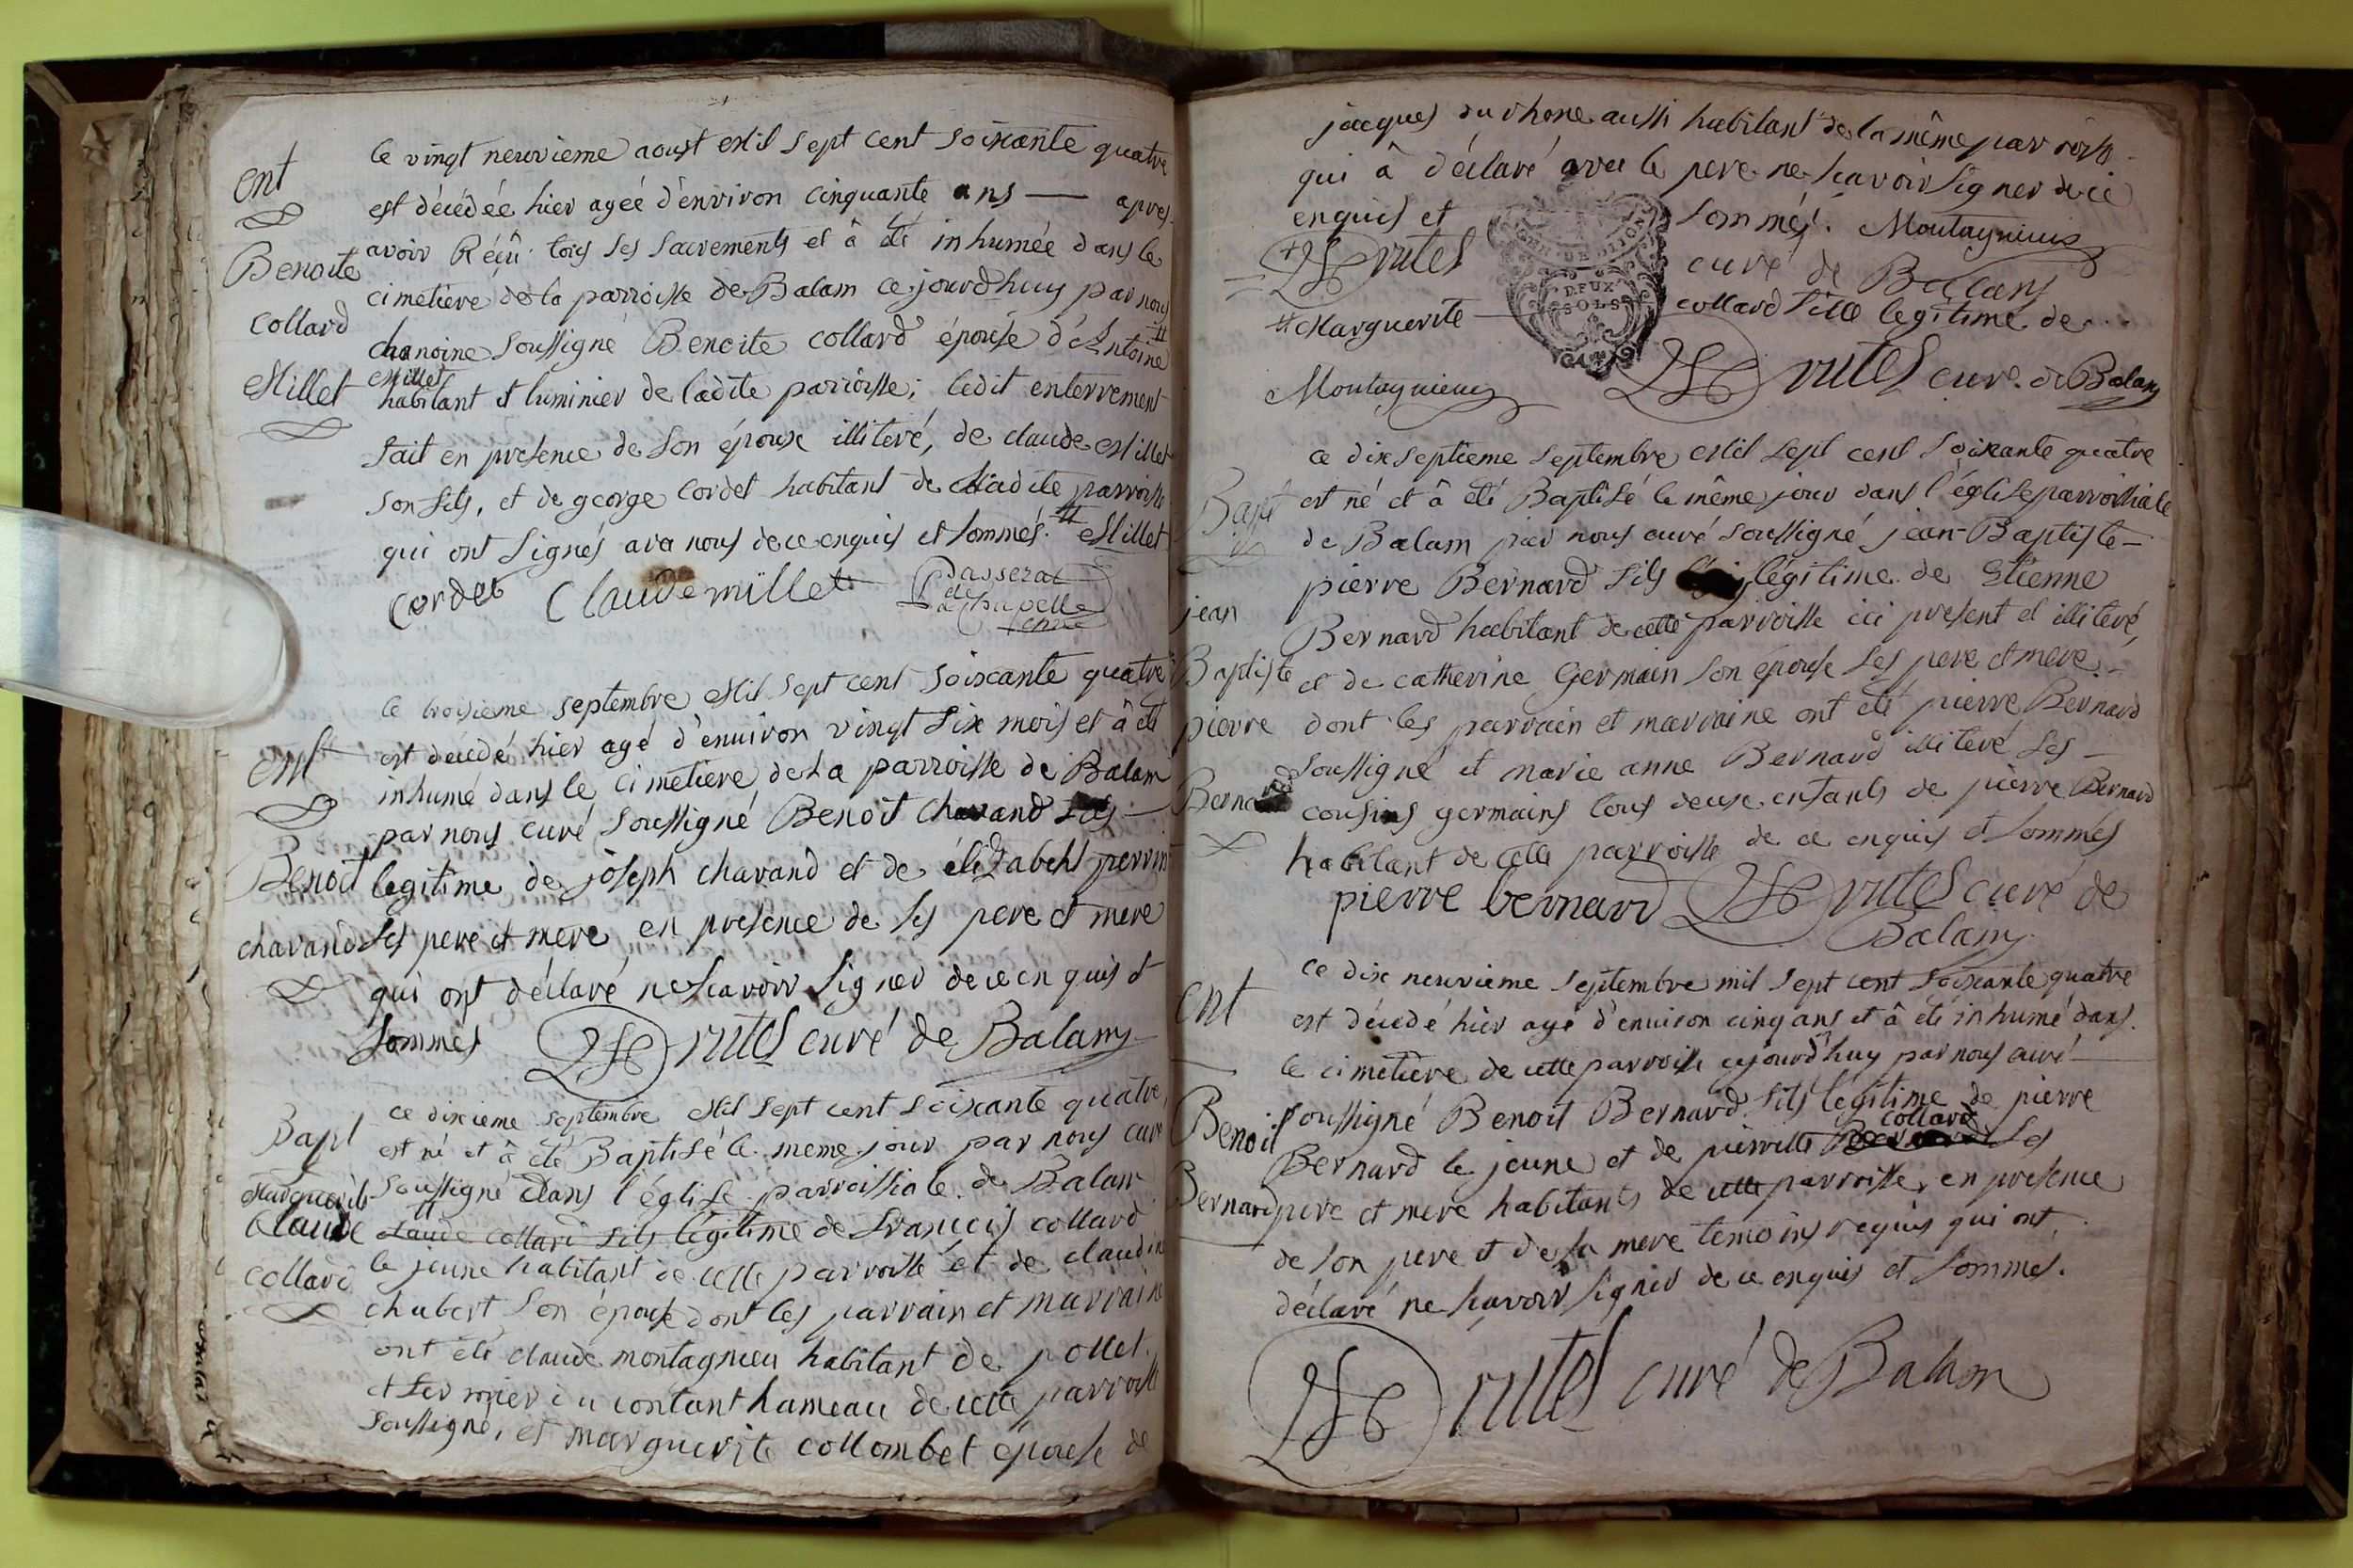 ent
Benoite
Collard
Millet
le vingt neuvieme aoust Mil sept cent soixante quatre
est décédée hier agée d'environ cinquante ans — apres
avoir Réçû tous ses sacrements et à été inhumée dans le
cimetiere de la parroisse de Balam ce jourd'huy par nous
chanoine soussigné Benoite collard épouse d'Antoine
Millet
habitant et luminier de ladite parroisse; ledit enterrement
fait en presence de son époux illiteré, de claude Millet
son fils, et de george Cordet habitant de ladite parroisse
qui ont signés avec nous de ce enquis et sommés. Millet
Cordet Claude millet Passerat
de
la Chapelle
ent
Benoit
chavand
le troisieme septembre Mil sept cent soixante quatre
est décédé hier agé d'environ vingt six mois et à été
inhumé dans le cimetiere de la parroisse de Balam
par nous curé soussigné Benoit chavand fils —
legitime de joseph chavand et de élizabeht perrin
ses pere et mere en presence de ses pere et mere
qui ont déclaré ne scavoir signer de ce enquis et
sommés rutel curé de Balam
Bapt
Marguerite
Claude
Collard
ce dixieme septembre Mil sept cent soixante quatre
est né et à été Baptisé le meme jour par nous curé
soussigné dans l'église parroissiale de Balam
claude collard fils légitime de Francois collard
le jeune habitant de cette parroisse et de claudine
chubert son épouse dont les parrain et marraine
ont été claude montagnieu habitant de pollet
et fermier du contant hameau de cette parroisse
soussigné, et marguerite collombet épouse de
jacques du rhone aussi habitant de la même parroisse
qui à déclaré avec le pere ne scavoir signer de ce
enquis et sommés. Montagnieu
rutel curé de Balam
DEUX
SOLS
Marguerite collard fille legitime de
Montagnieu rutel curé de Balam
Bapt
jean
Baptiste
pierre
Bernard
ce dix septieme septembre Mil sept cent soixante quatre
est né et à été Baptisé le même jour dans l'église parroissiale
de Balam par nous curé soussigné jean-Baptiste —
pierre Bernard fils légitime de Etienne
Bernard habitant de cette parroisse ici present et illiteré,
et de catherine Germain son épouse ses pere et mere —
dont les parrain et marraine ont été pierre Bernard
soussigné et marie anne Bernard illiteré ses —
cousins germains tous deux enfants de pierre Bernard
habitant de cette parroisse de ce enquis et sommés
pierre bernard rutel curé de
Balam
ent
Benoit
Bernard
ce dix neuvieme septembre mil sept cent soixante quatre
est décédé hier agé d'environ cinq ans et à été inhumé dans
le cimetiere de cette parroisse cejourd'huy par nous curé —
soussigné Benoit Bernard fils légitime de pierre
collard
Bernard le jeune et de pierrette ses
pere et mere habitants de cette parroisse, en presence
de son pere et de sa mere temoins requis qui ont
déclaré ne scavoir signer de ce enquis et sommés.
rutel curé de Balam